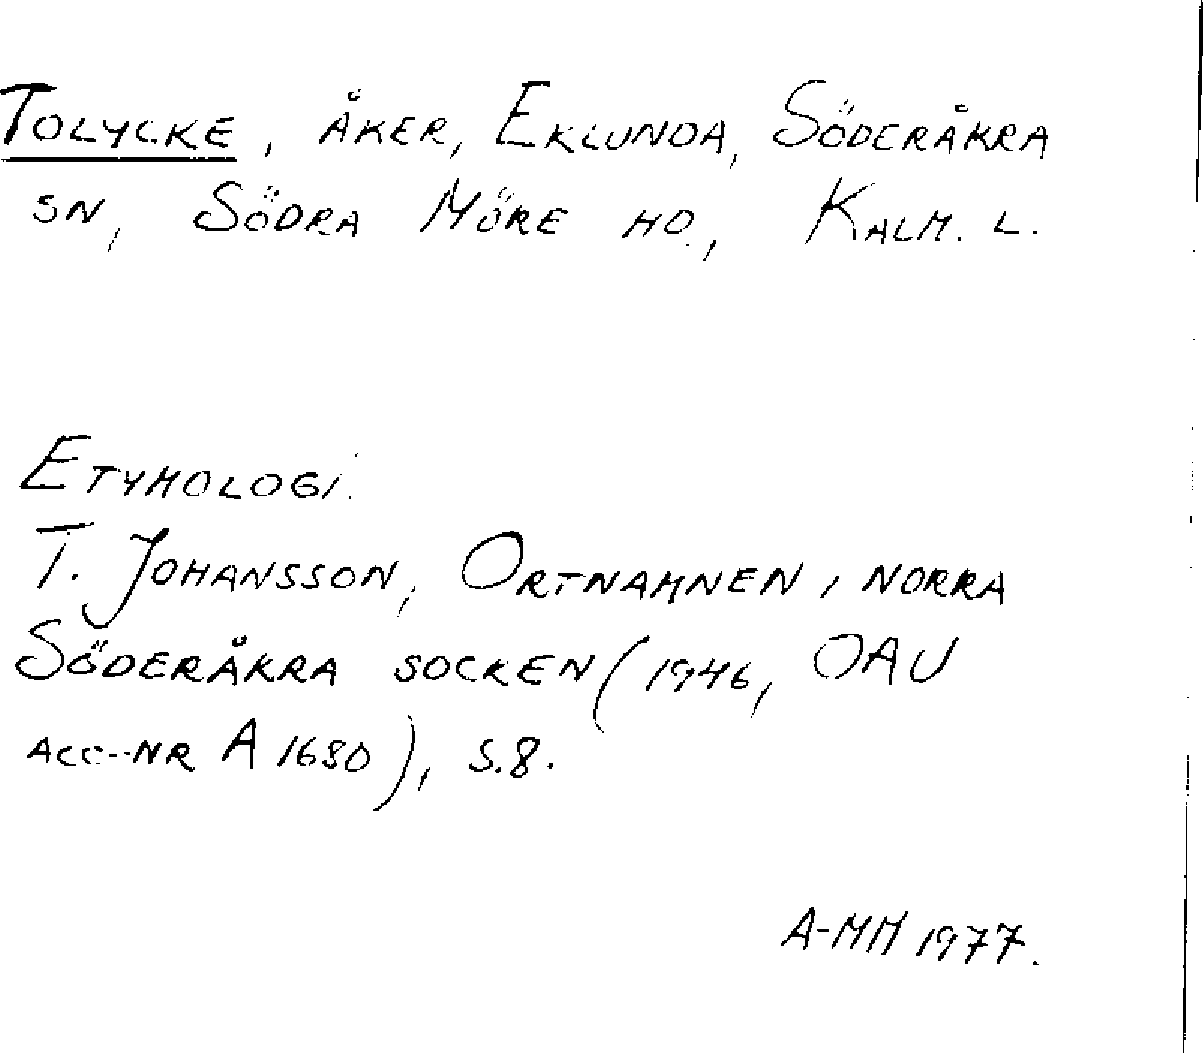 TOLYCKE, ÅKER, EKLUNDA, SÖDERÅKRA
SN, SÖDRA MÖRE HD., KALM. L.
ETYMOLOGI.
T. JOHANSSON, ORTNAMNEN I NORRA
SÖDERÅKRA SOCKEN (1946, OAU
ACC-NR A 1680), S.8.
A-MM 1977.